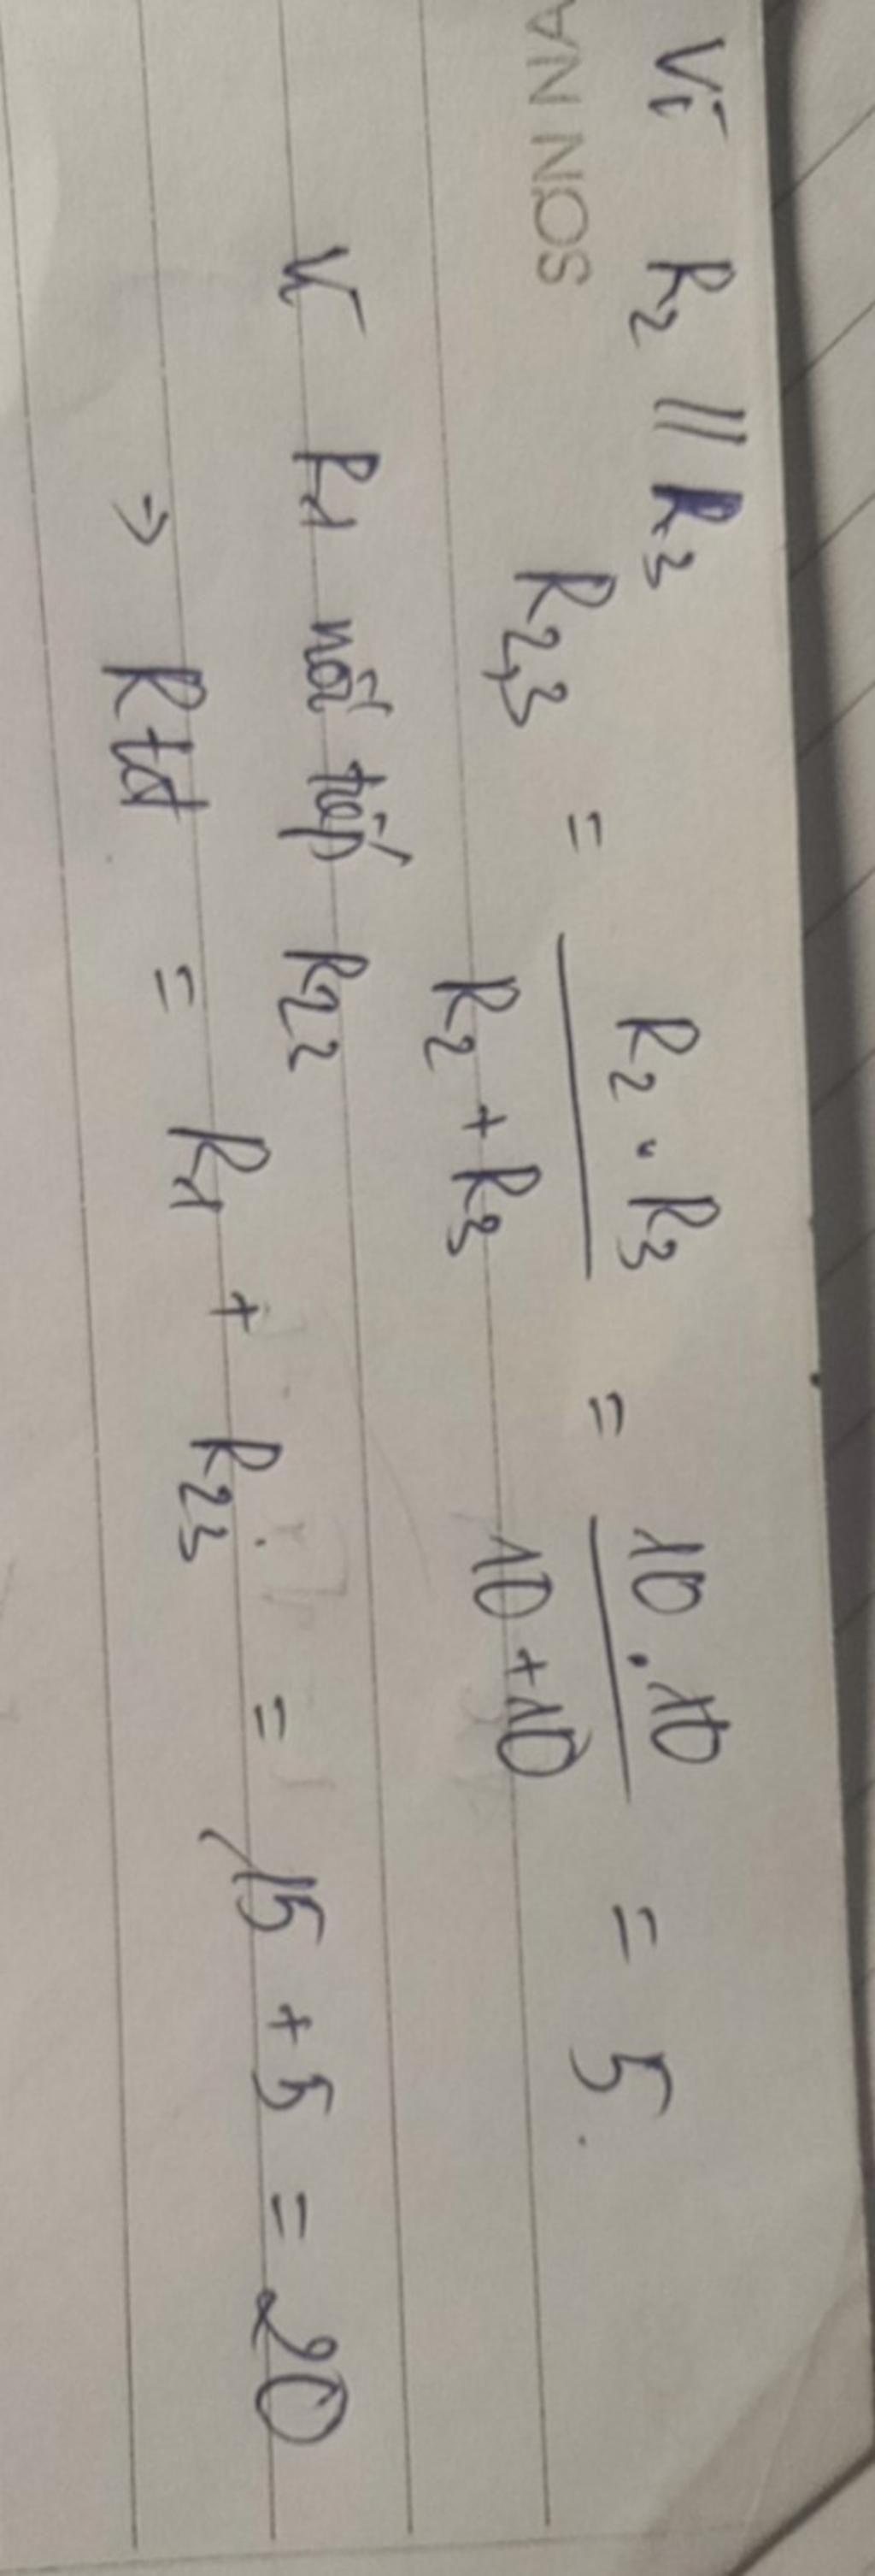 Vì R2 // R3
SON NA
R2,3 = R2 . R3 / R2 + R3 = 10 . 10 / 10 + 10 = 5
Vì R1 nối tiếp R22
=> Rtđ = R1 + R23 = 15 + 5 = 20